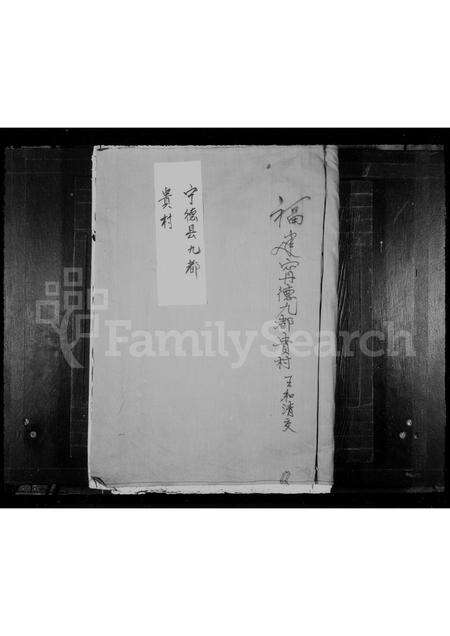 福建寧德九都貴村 王和清交
宁德县九都
貴村
FamilySearch